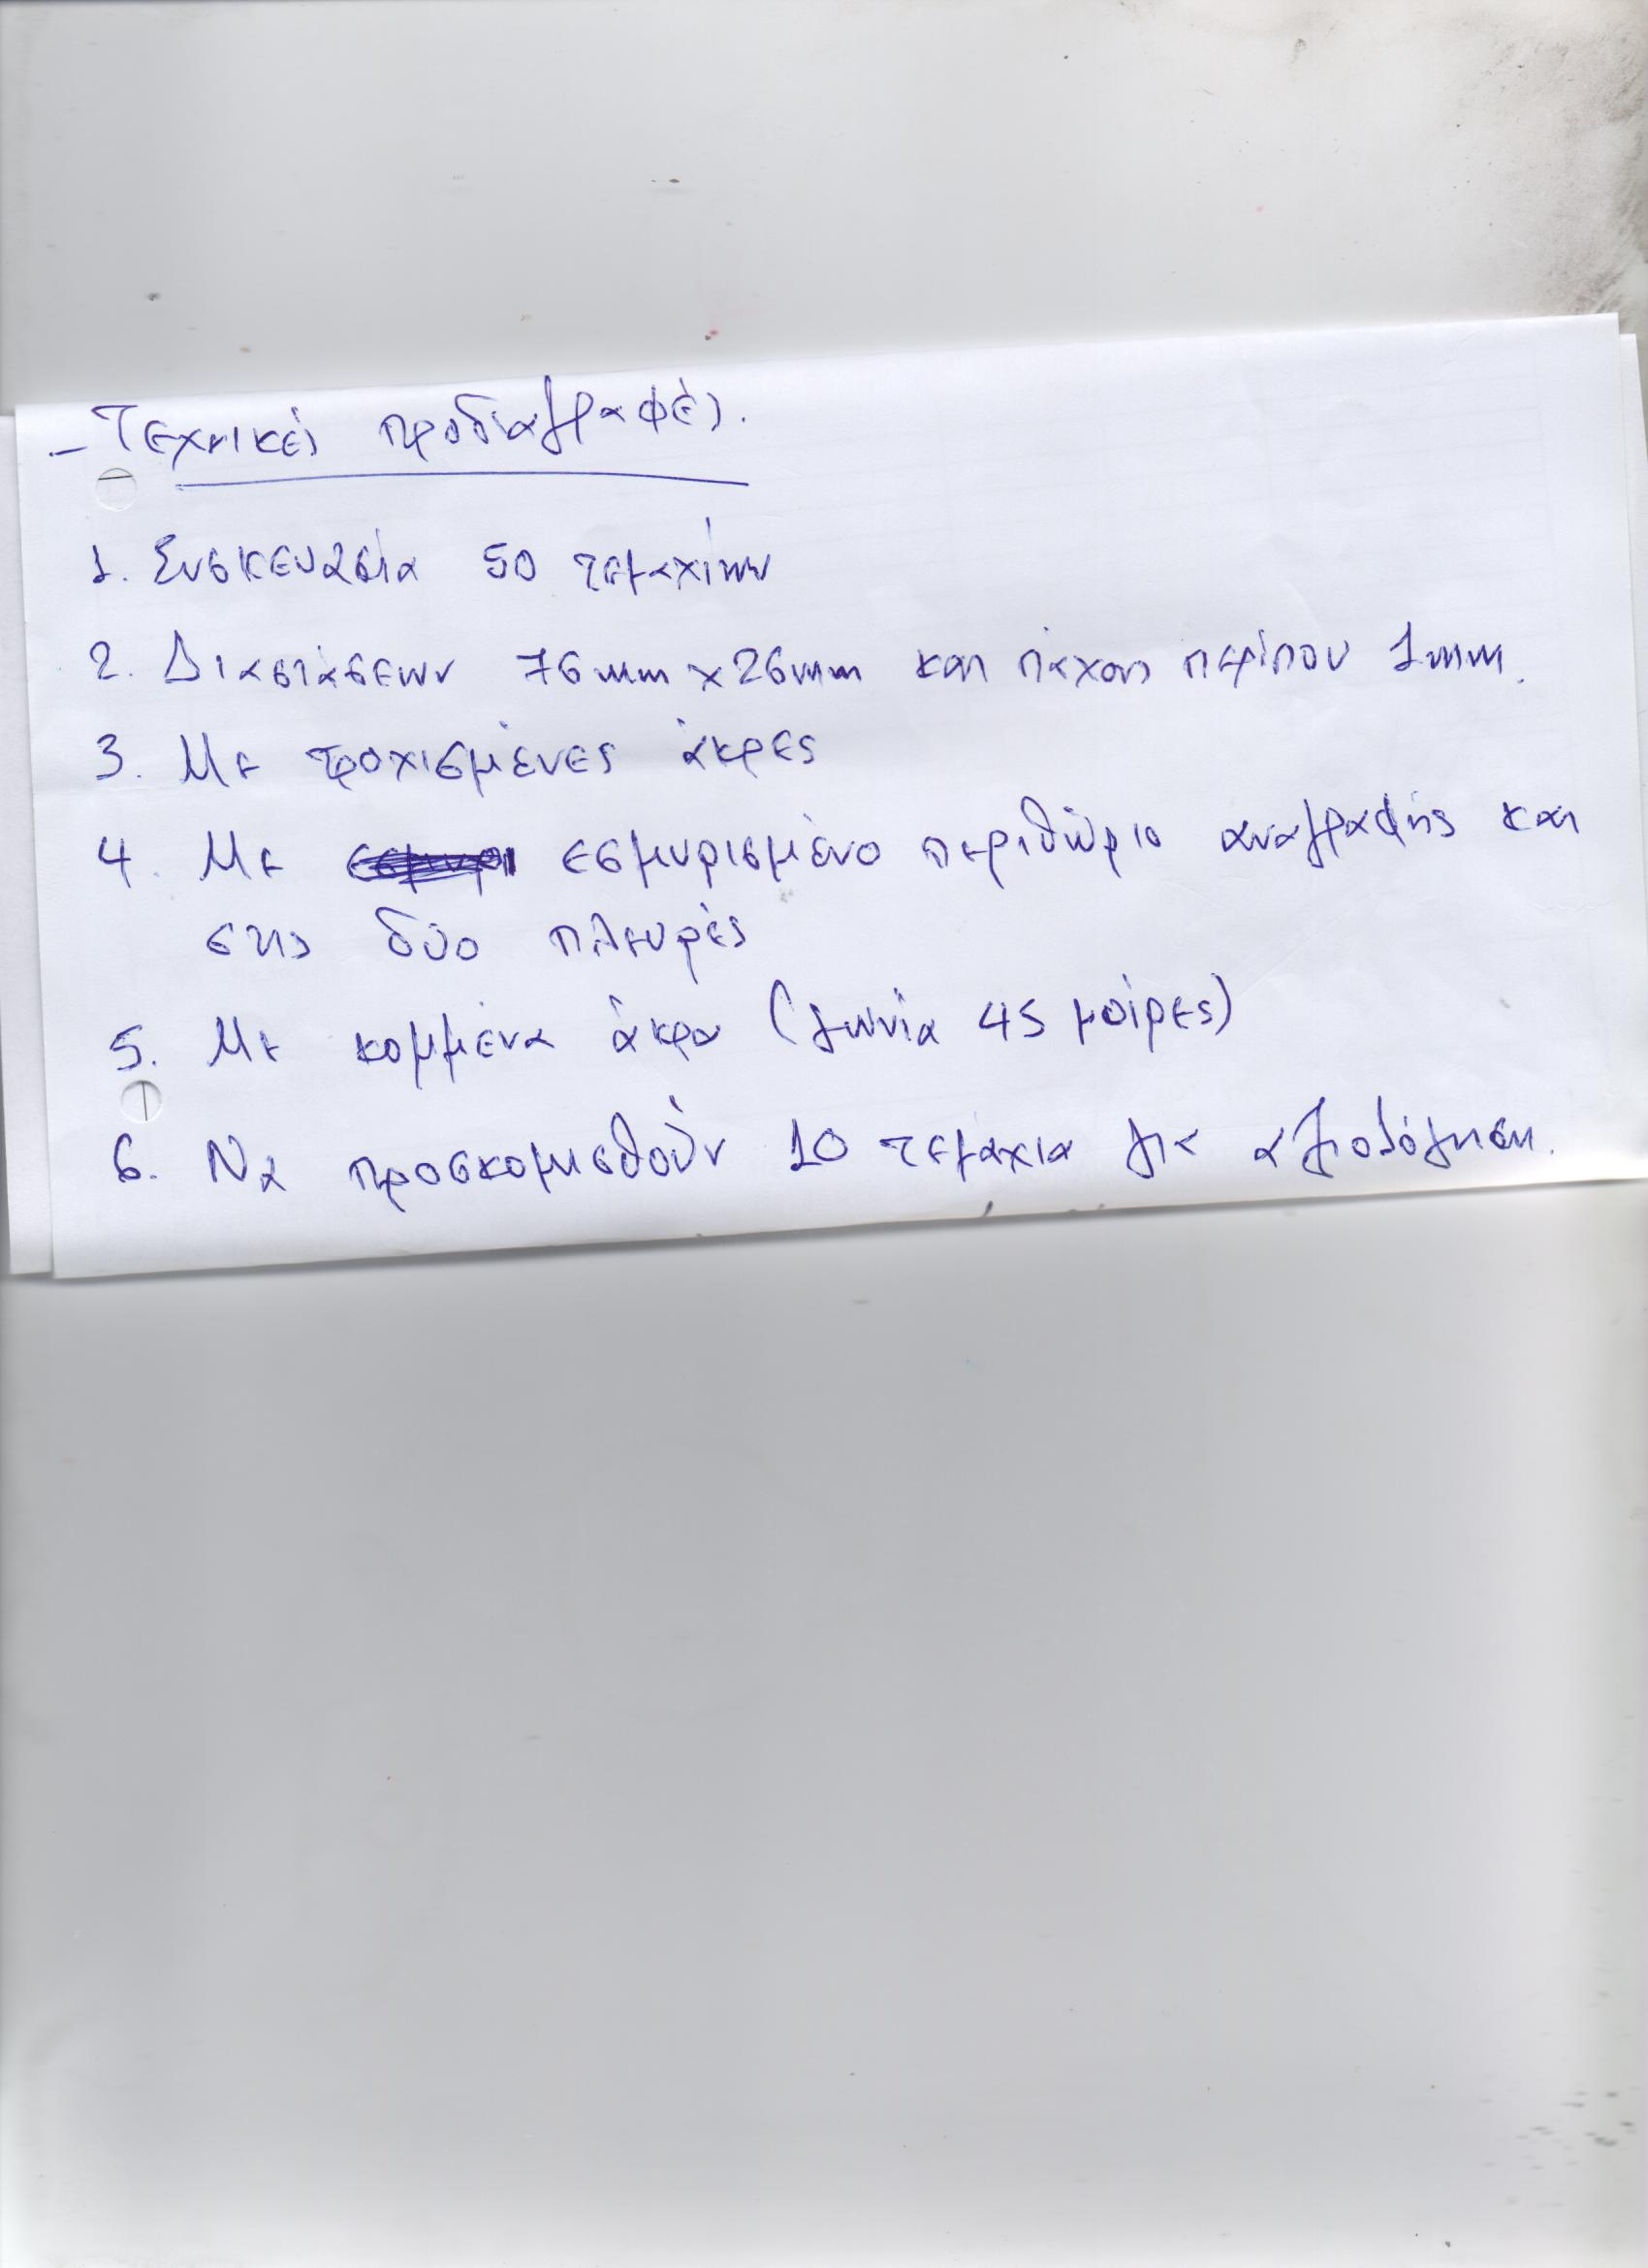 - Τεχνικές προδιαγραφές.
1. Συσκευασία 50 τεμαχίων
2. Διαστάσεων 76mm x 26mm και πάχους περίπου 1mm.
3. Με τροχισμένες άκρες
4. Με εσμυρισμένο περιθώριο αναγραφής και
στις δύο πλευρές
5. Με κομμένα άκρα (γωνία 45 μοίρες)
6. Να προσκομισθούν 10 τεμάχια για αξιολόγηση.